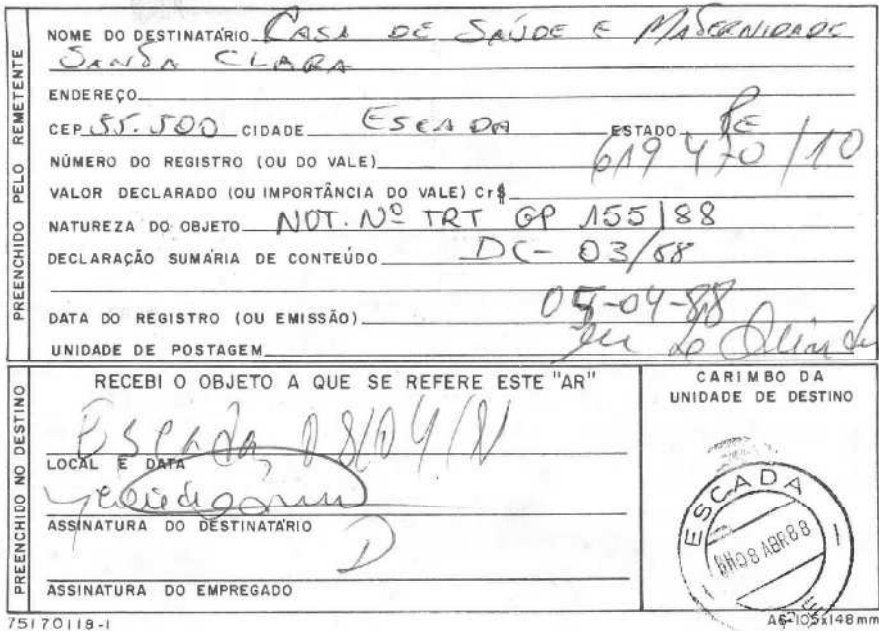 PREENCHIDO PELO REMETENTE
NOME DO DESTINATÁRIO CASA DE SAÚDE E MATERNIDADE
SANTA CLARA
ENDEREÇO
CEP 55.500 CIDADE ESCADA ESTADO PE
NÚMERO DO REGISTRO (OU DO VALE) 619470/10
VALOR DECLARADO (OU IMPORTÂNCIA DO VALE) Cr$
NATUREZA DO OBJETO NOT. Nº TRT GP 155/88
DECLARAÇÃO SUMÁRIA DE CONTEÚDO DC-03/88
DATA DO REGISTRO (OU EMISSÃO) 05-04-88
UNIDADE DE POSTAGEM
PREENCHIDO NO DESTINO
RECEBI O OBJETO A QUE SE REFERE ESTE "AR"
Escada, 08/04/
LOCAL E DATA
ASSINATURA DO DESTINATÁRIO
ASSINATURA DO EMPREGADO
CARIMBO DA
UNIDADE DE DESTINO
ESCADA
08 ABR 88
75170118-1
A6-105x148mm